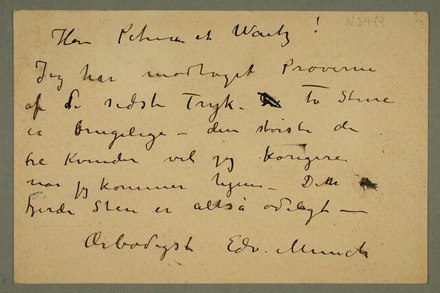 Herr Petersen et Waitz!
Jeg har modtaget Prøverne
af de sidste Tryk. To Stene
er brugelige – den største de
tre Kvinder vil jeg korrigere
naar jeg kommer hjem – Den
fjerde Sten er altså ødelagt –
Ærbødigst Edv. Munch